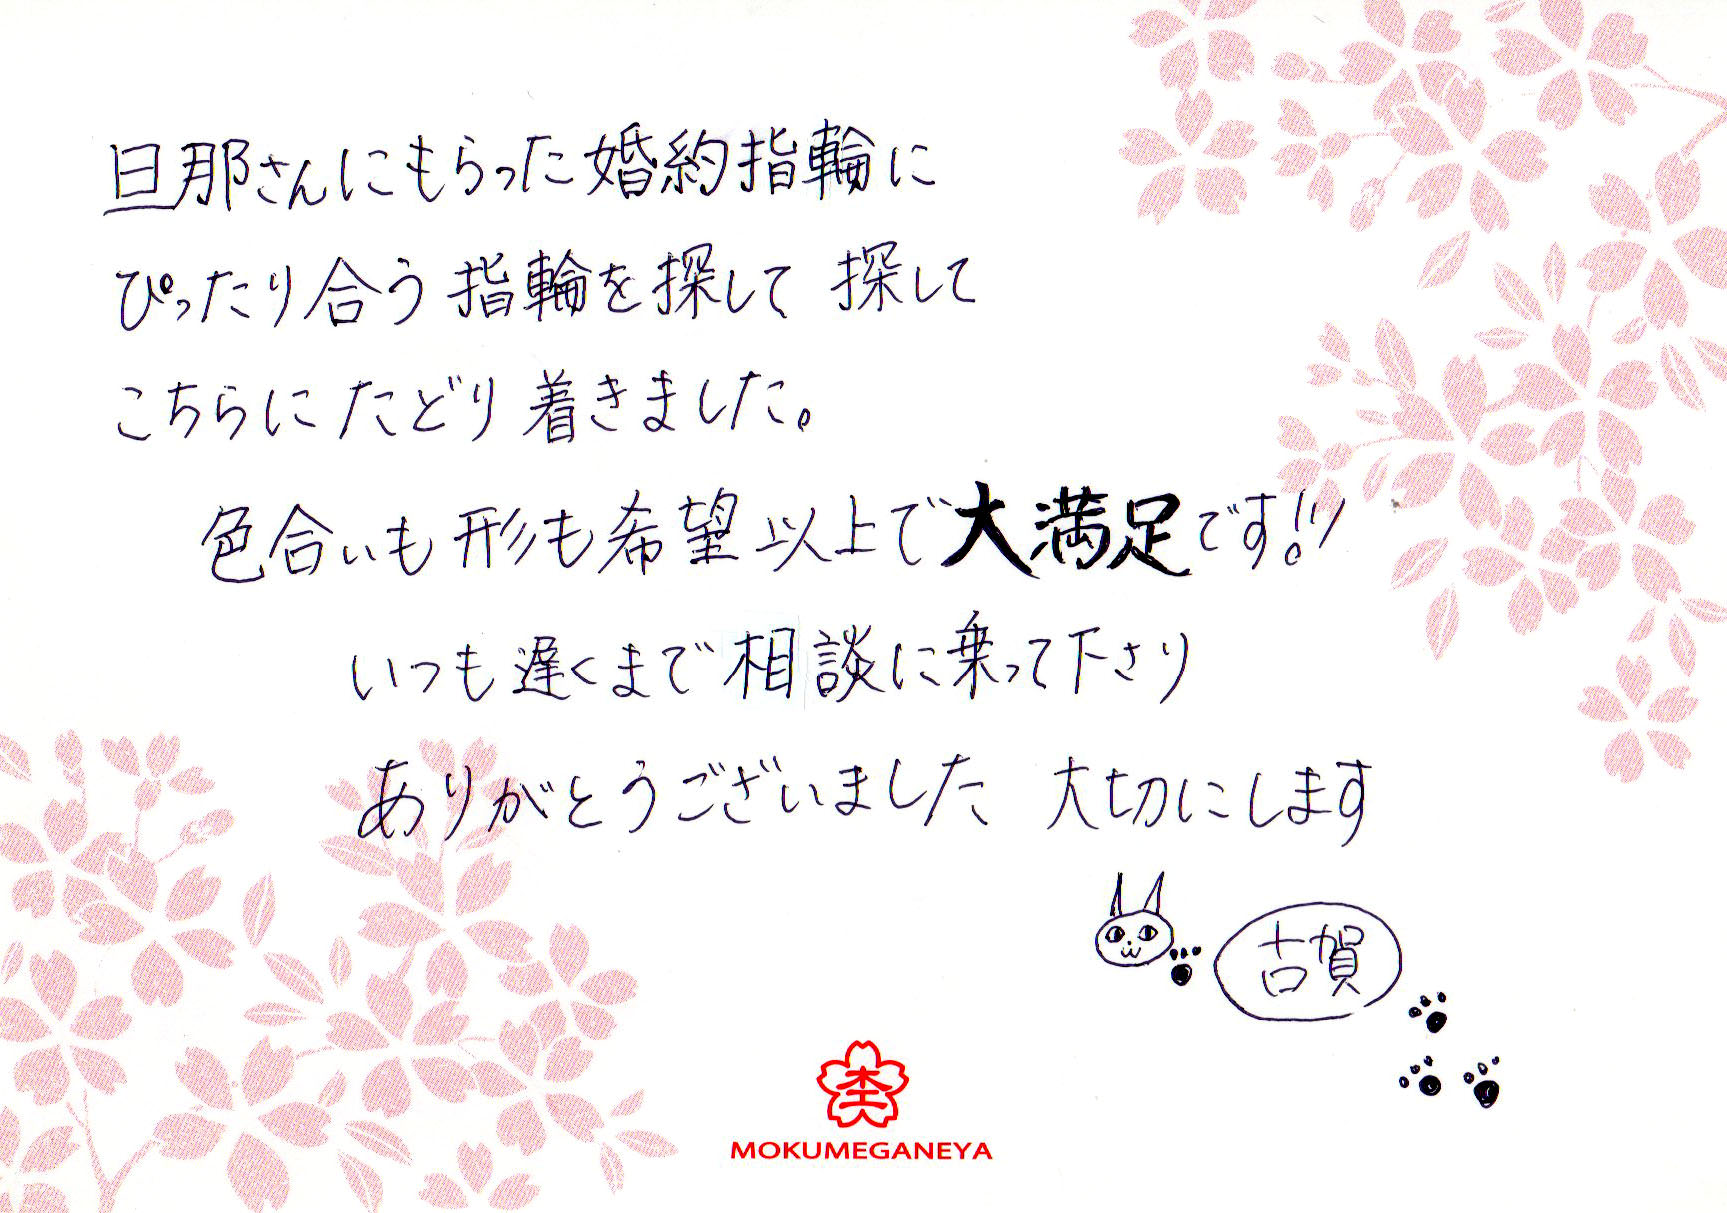 旦那さんにもらった婚約指輪に
ぴったり合う指輪を探して 探して
こちらにたどり着きました。
色合いも形も希望以上で大満足です!!
いつも遅くまで相談に乗って下さり
ありがとうございました 大切にします
古賀
MOKUMEGANEYA